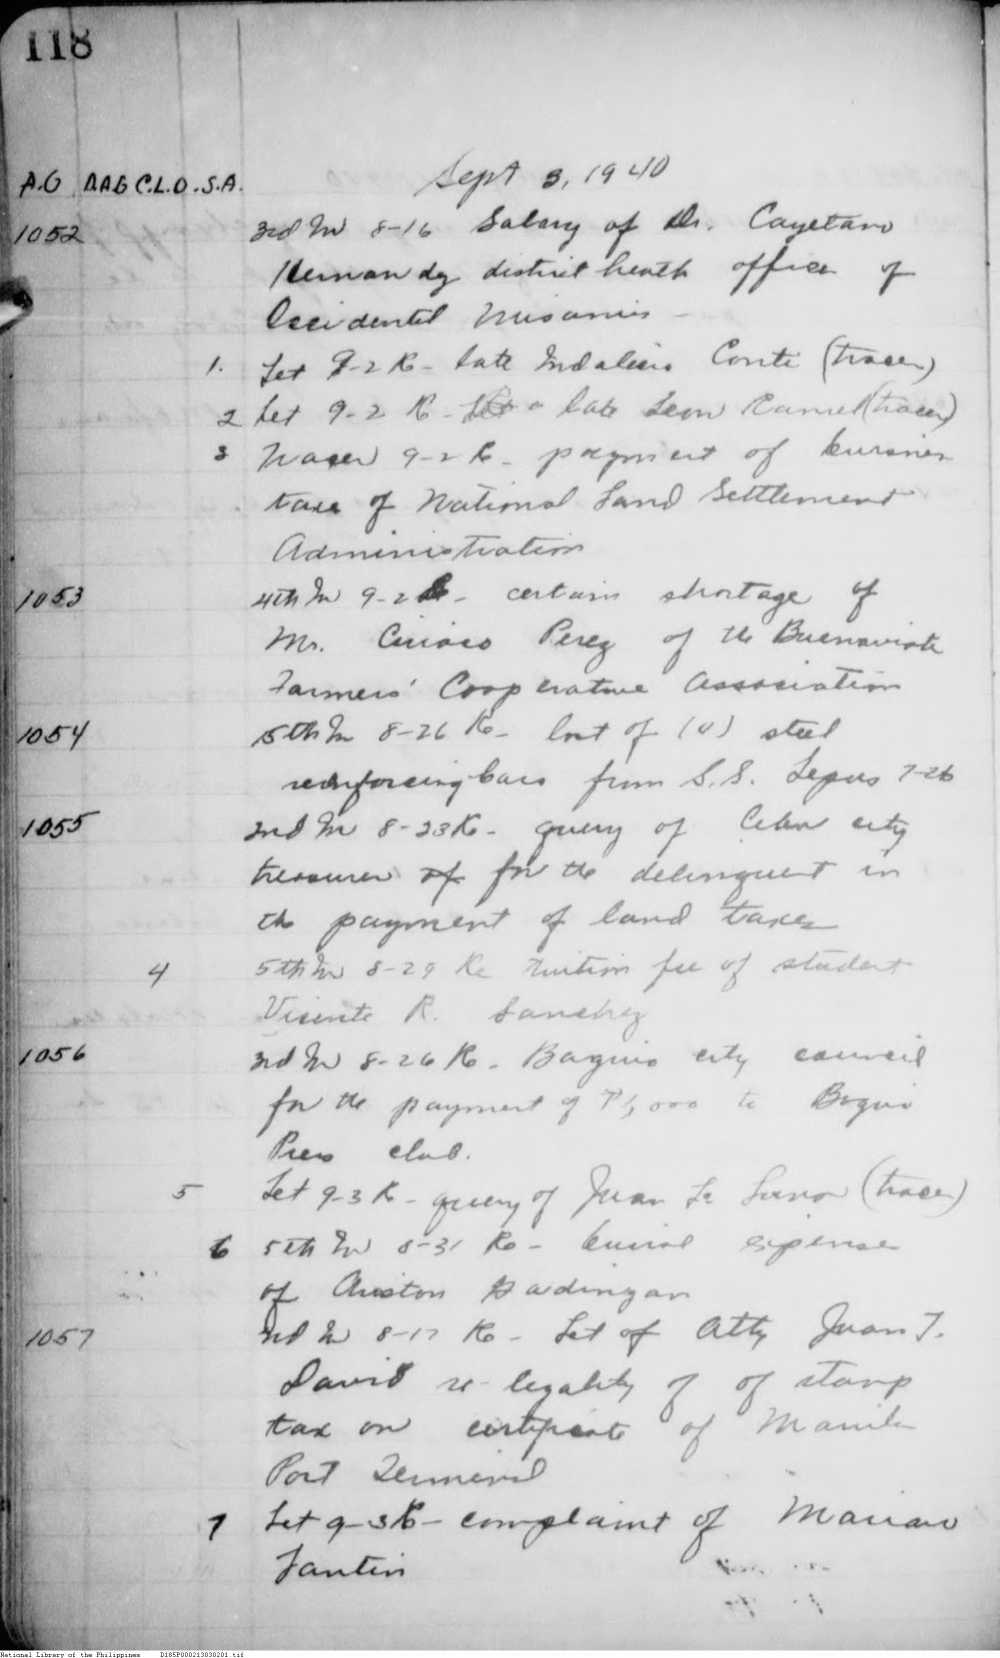 118
A.G D.A.G C.L.O. S.A. Sept 3, 1940
1052 3rd In 8-16 Salary of Dr. Cayetano
Hernandez district health officer of
Occidental Misamis -
1. Let 9-2 Re- late Indalecio Conti (tracer)
2 Let 9-2 Re - late Leon (tracer)
3 Tracer 9-2 Re- payment of business
taxes of National Land Settlement
Administration
1053 4th In 9-2 Re- certain shortage of
Mr. Ciriaco Perez of the Buenavista
Farmers' Cooperative Association
1054 5th In 8-26 Re- lost of (4) steel
reinforcing bars from S.S. Lepus 7-26
1055 2nd In 8-23 Re- query of Cebu city
treasurer of for the delinquent in
the payment of land taxes
4 5th In 8-29 Re Tuition fee of student
Vicente R. Sanchez
1056 3rd In 8-26 Re- Baguio city council
for the payment of ₱1,000 to Baguio
Press club.
5 Let 9-3 Re- query of Juan (tracer)
6 5th In 8-31 Re- burial expense
of Ariston Gadingan
1057 2nd In 8-17 Re- Let of Atty Juan T.
David re- legality of of stamp
tax on certificate of Manila
Port Terminal
7 Let 9-3 Re- complaint of Mariano
Fantin
National Library of the Philippines D185P000213030201.tif